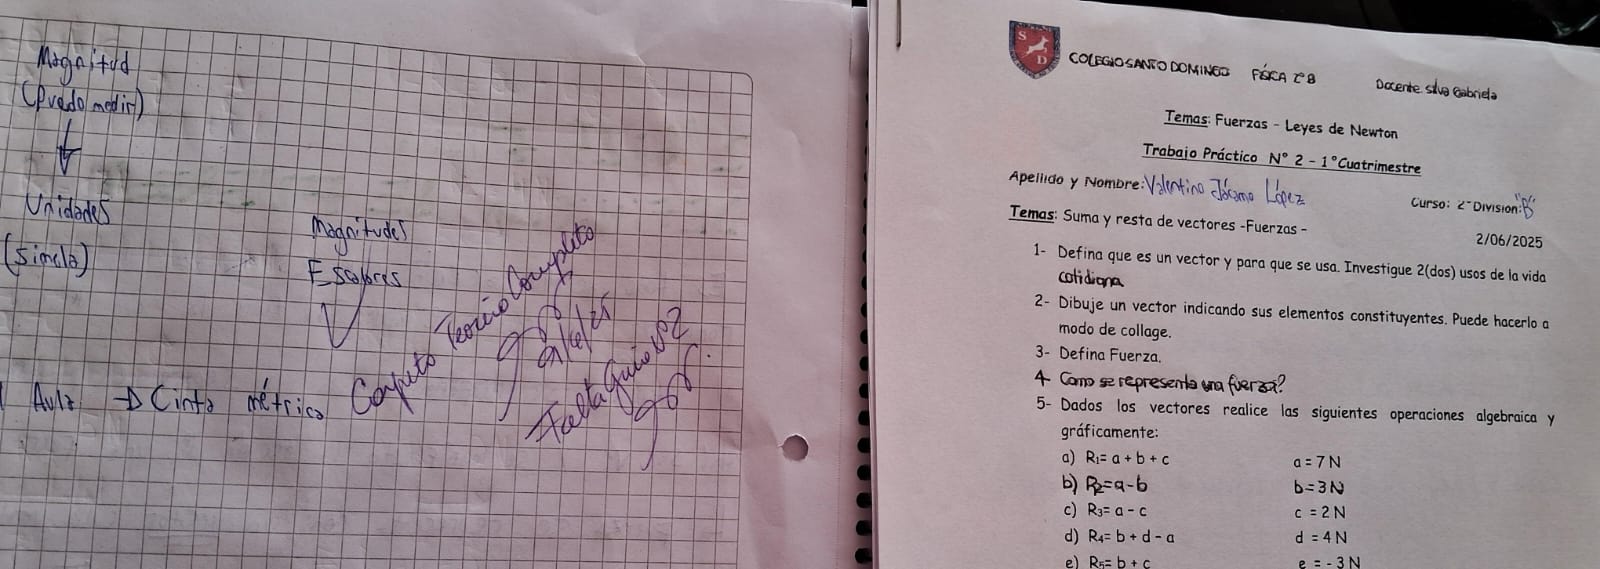 Magnitud
(Puedo medir)
Unidades
(simela)
Magnitudes
Escalares
Aula → Cinta métrica
Completo Teoría Completo
9/6/25
Falta Guía Nº2
S
D
COLEGIO SANTO DOMINGO FÍSICA 2º B Docente: Silva Gabriela
Temas: Fuerzas - Leyes de Newton
Trabajo Práctico N° 2 - 1°Cuatrimestre
Apellido y Nombre: Valentino Jácamo López Curso: 2° División: "B"
Temas: Suma y resta de vectores -Fuerzas - 2/06/2025
1- Defina que es un vector y para que se usa. Investigue 2(dos) usos de la vida
cotidiana
2- Dibuje un vector indicando sus elementos constituyentes. Puede hacerlo a
modo de collage.
3- Defina Fuerza.
4- Como se representa una fuerza?
5- Dados los vectores realice las siguientes operaciones algebraica y
gráficamente:
a) R₁= a + b + c a = 7 N
b) R2=a-b b=3N
c) R₃= a - c c = 2 N
d) R₄= b + d - a d = 4 N
e) R₅= b + c e = - 3 N